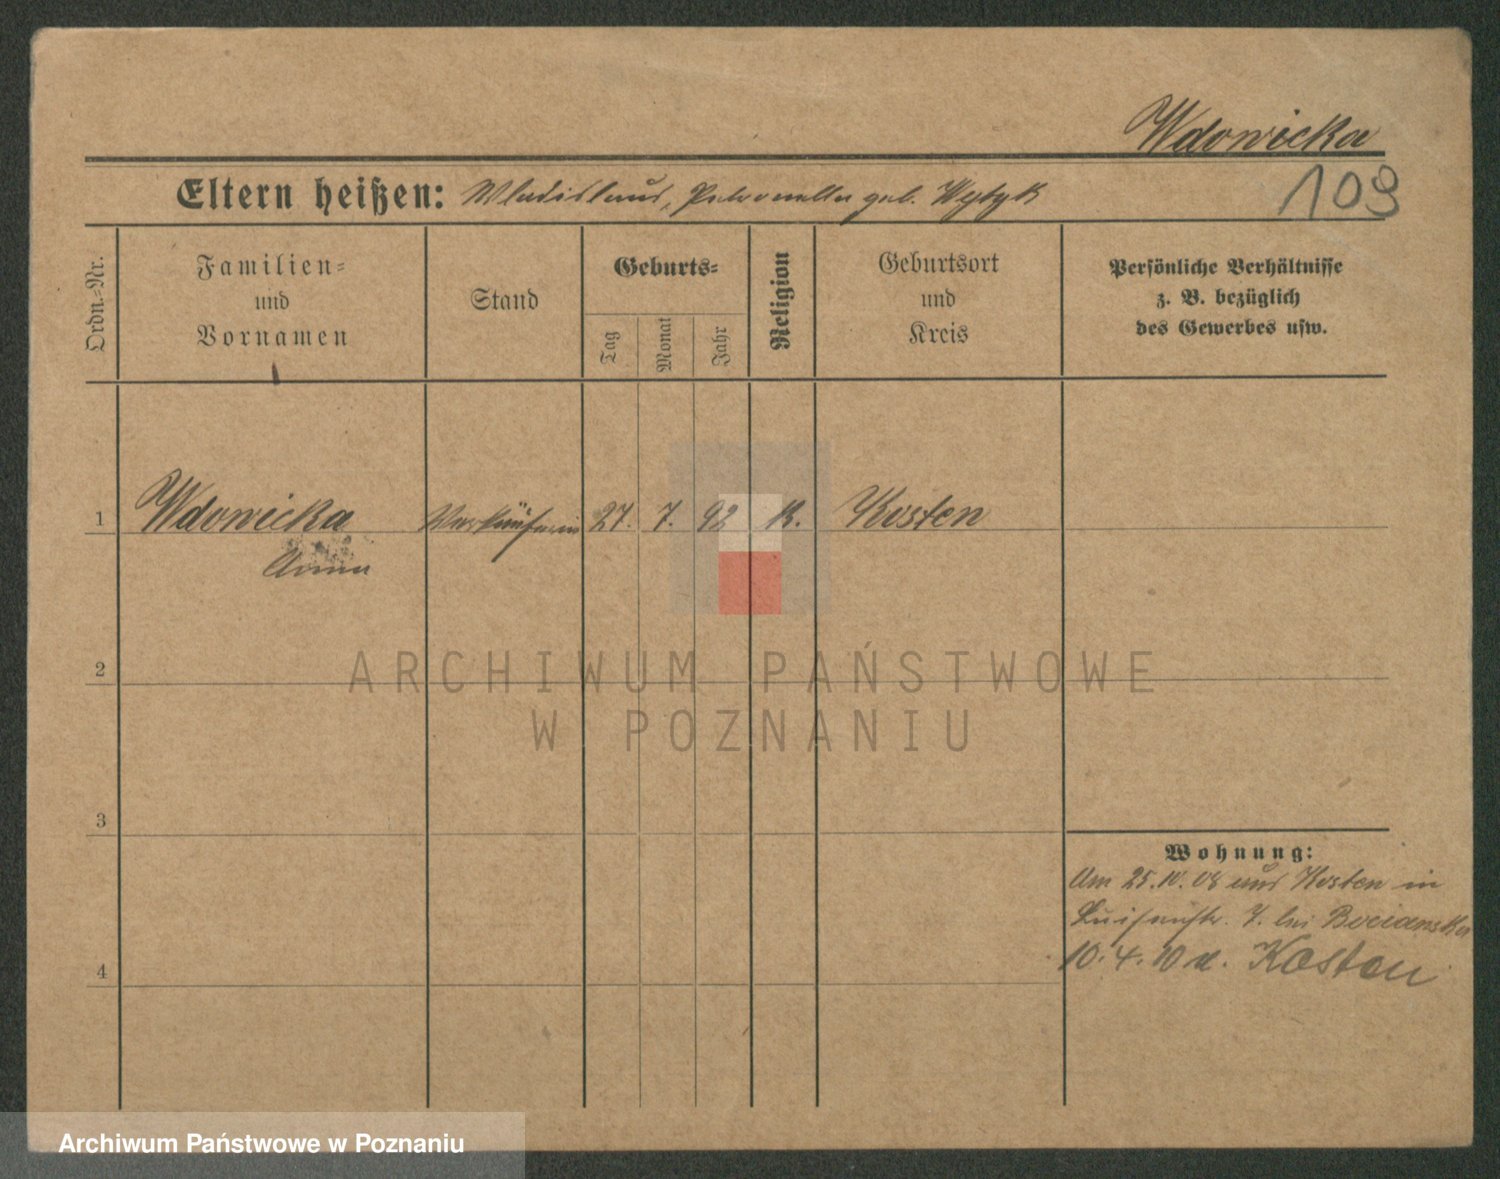 Wdowicka
Eltern heißen: Wladislaus, Petronella geb. Wyzyk
109
Ordn.-Nr.
Familien- und Vornamen
Stand
Geburts-
Tag
Monat
Jahr
Religion
Geburtsort und Kreis
Persönliche Verhältnisse
z. B. bezüglich
des Gewerbes usw.
1 Wdowicka Verkäuferin 27. 7. 92 K. Kosten
Anna
2
3
4
Wohnung:
Am 25.10.08 aus Kosten in
Luisenstr. 7. bei Bocianska
10.4.10 n. Kosten
ARCHIWUM PAŃSTWOWE
W POZNANIU
Archiwum Państwowe w Poznaniu